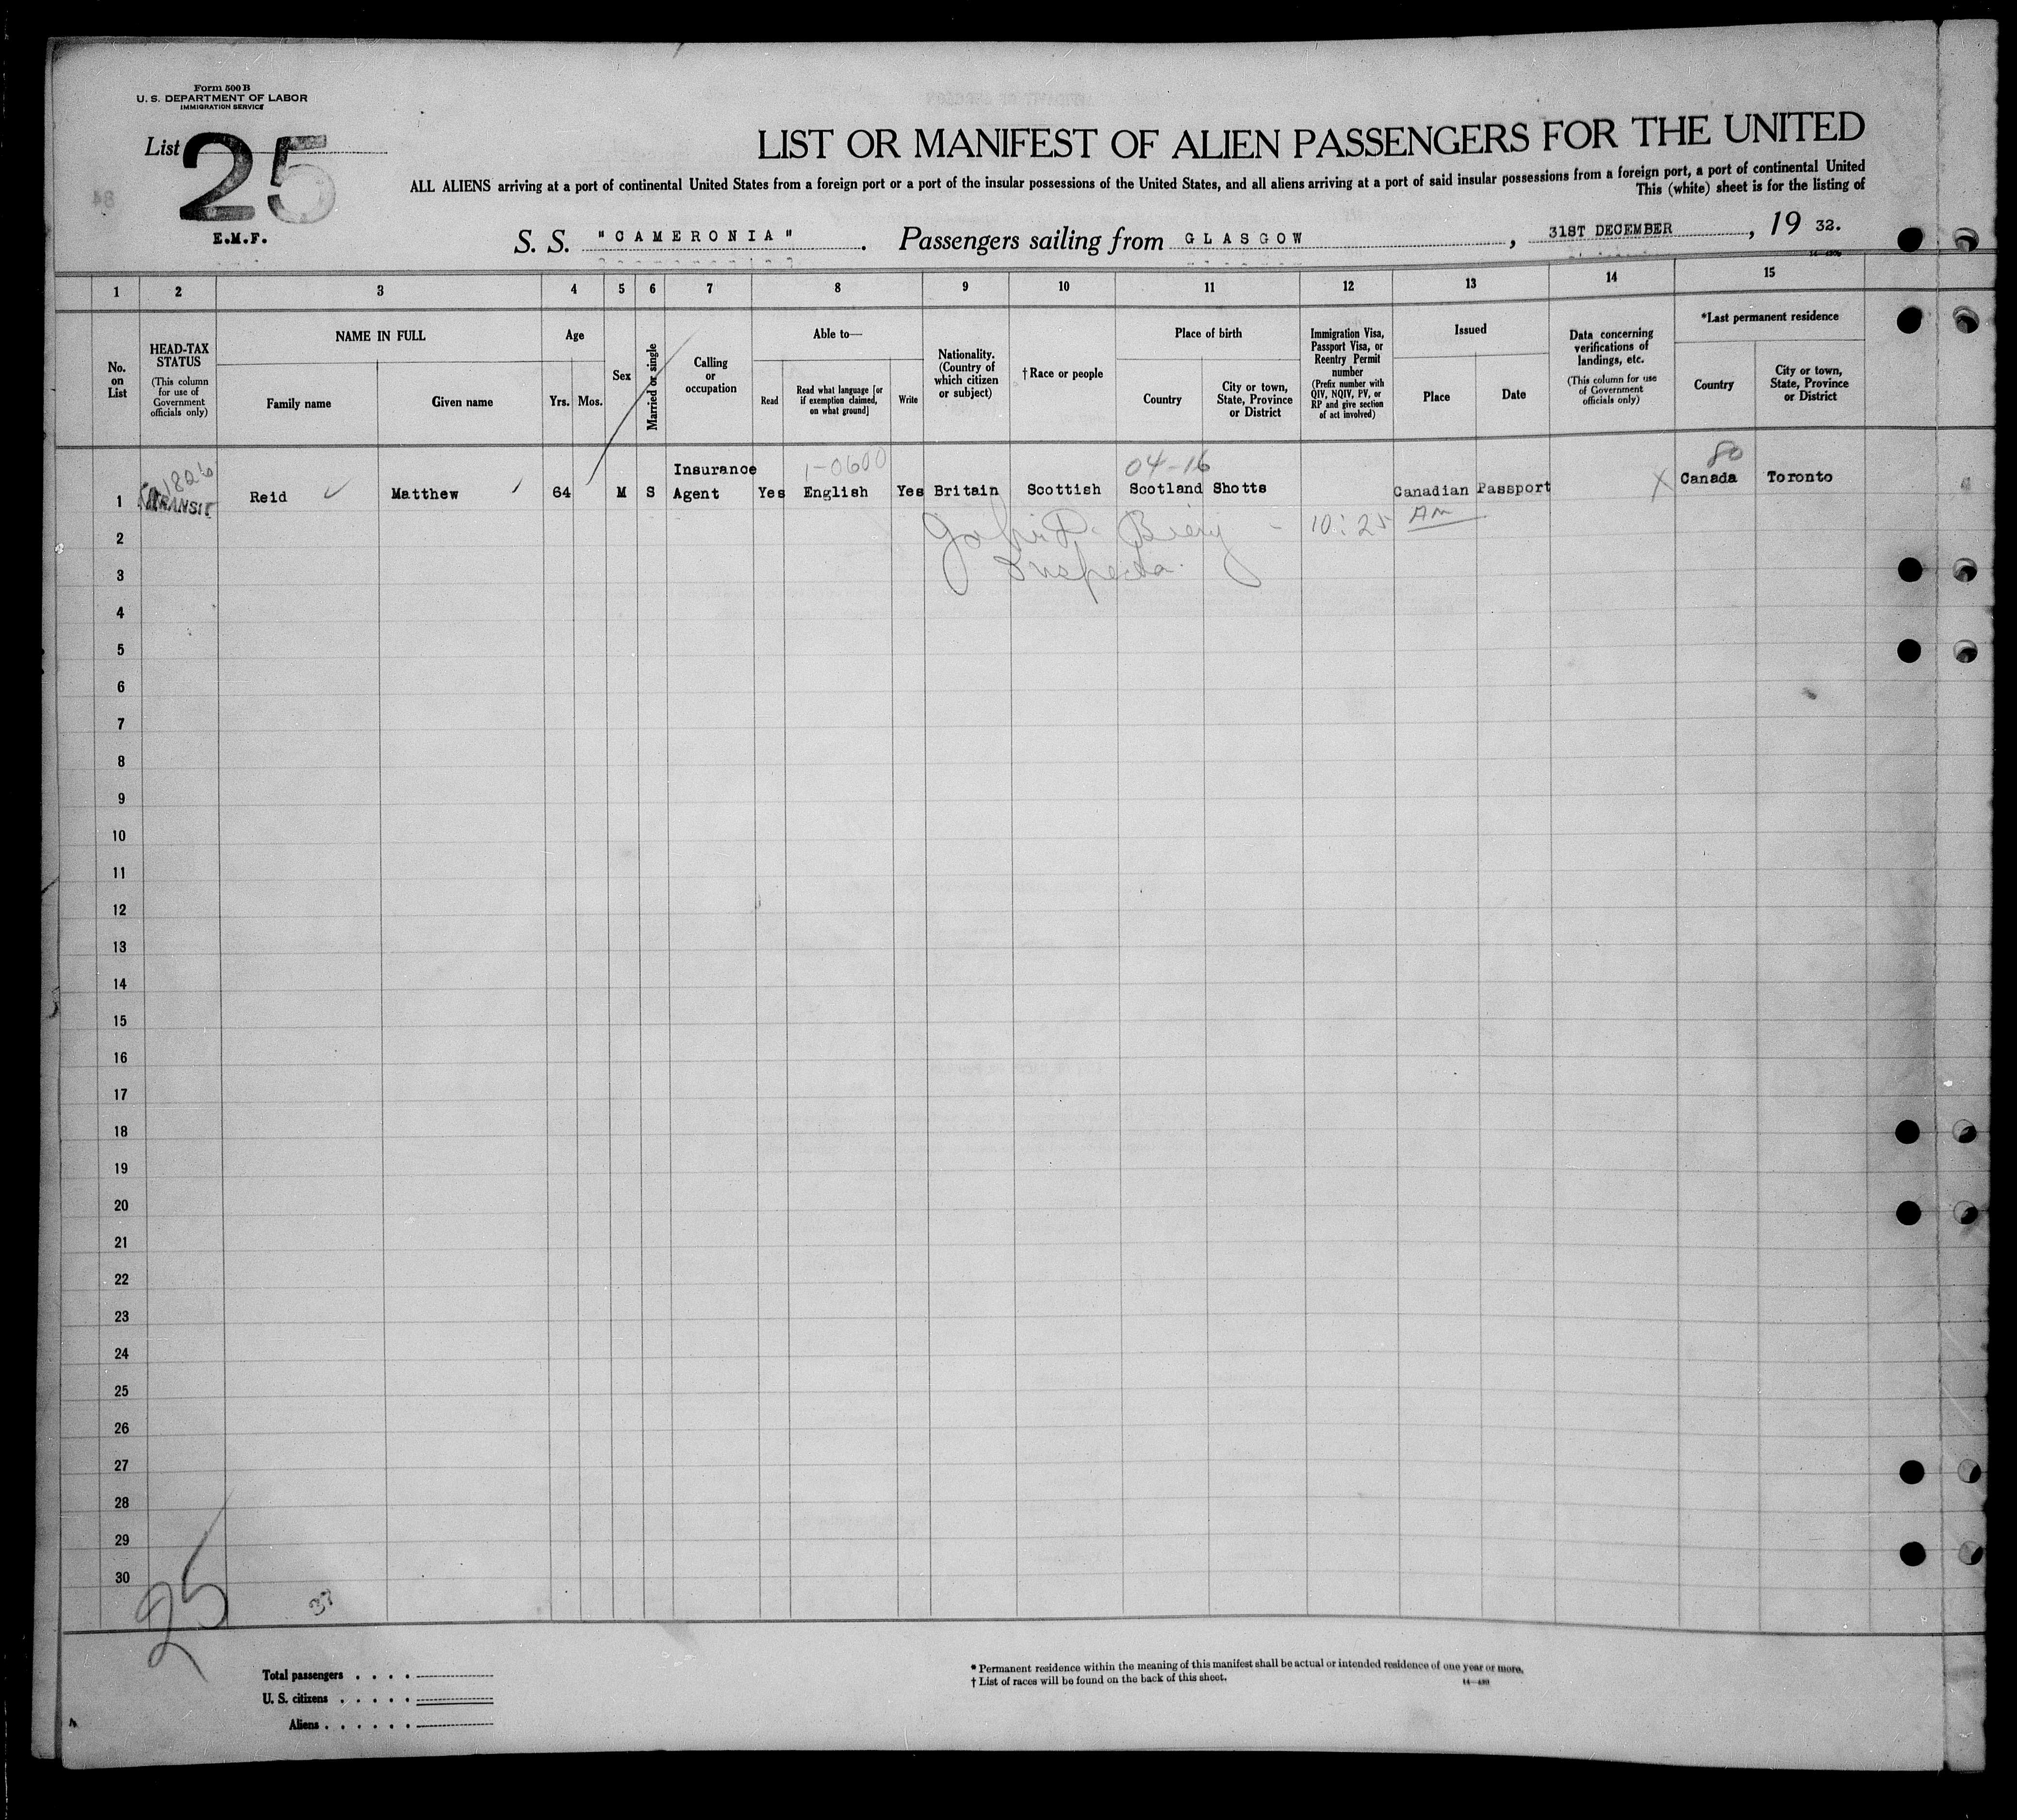 Form 500 B
U. S. DEPARTMENT OF LABOR
IMMIGRATION SERVICE
List 25
E.M.F.
LIST OR MANIFEST OF ALIEN PASSENGERS FOR THE UNITED
ALL ALIENS arriving at a port of continental United States from a foreign port or a port of the insular possessions of the United States, and all aliens arriving at a port of said insular possessions from a foreign port, a port of continental United
This (white) sheet is for the listing of
S. S. "CAMERONIA". Passengers sailing from GLASGOW, 31ST DECEMBER, 19 32.
1 2 3 4 5 6 7 8 9 10 11 12 13 14 15
No. on List
HEAD-TAX STATUS
(This column for use of Government officials only)
NAME IN FULL
Family name
Given name
Age
Yrs.
Mos.
Sex
Married or single
Calling or occupation
Able to—
Read
Read what language [or if exemption claimed, on what ground]
Write
Nationality. (Country of which citizen or subject)
†Race or people
Place of birth
Country
City or town, State, Province or District
Immigration Visa, Passport Visa, or Reentry Permit number
(Prefix number with QIV, NQIV, PV, or RP and give section of act involved)
Issued
Place
Date
Data concerning verifications of landings, etc.
(This column for use of Government officials only)
*Last permanent residence
Country
City or town, State, Province or District
1-0600 04-16 80
1 TRANSIT Reid Matthew 64 M S Insurance Agent Yes English Yes Britain Scottish Scotland Shotts Canadian Passport X Canada Toronto
John P. Biery - 10:25 AM
Inspector.
2
3
4
5
6
7
8
9
10
11
12
13
14
15
16
17
18
19
20
21
22
23
24
25
26
27
28
29
30
25
Total passengers
U. S. citizens
Aliens
* Permanent residence within the meaning of this manifest shall be actual or intended residence of one year or more.
† List of races will be found on the back of this sheet.